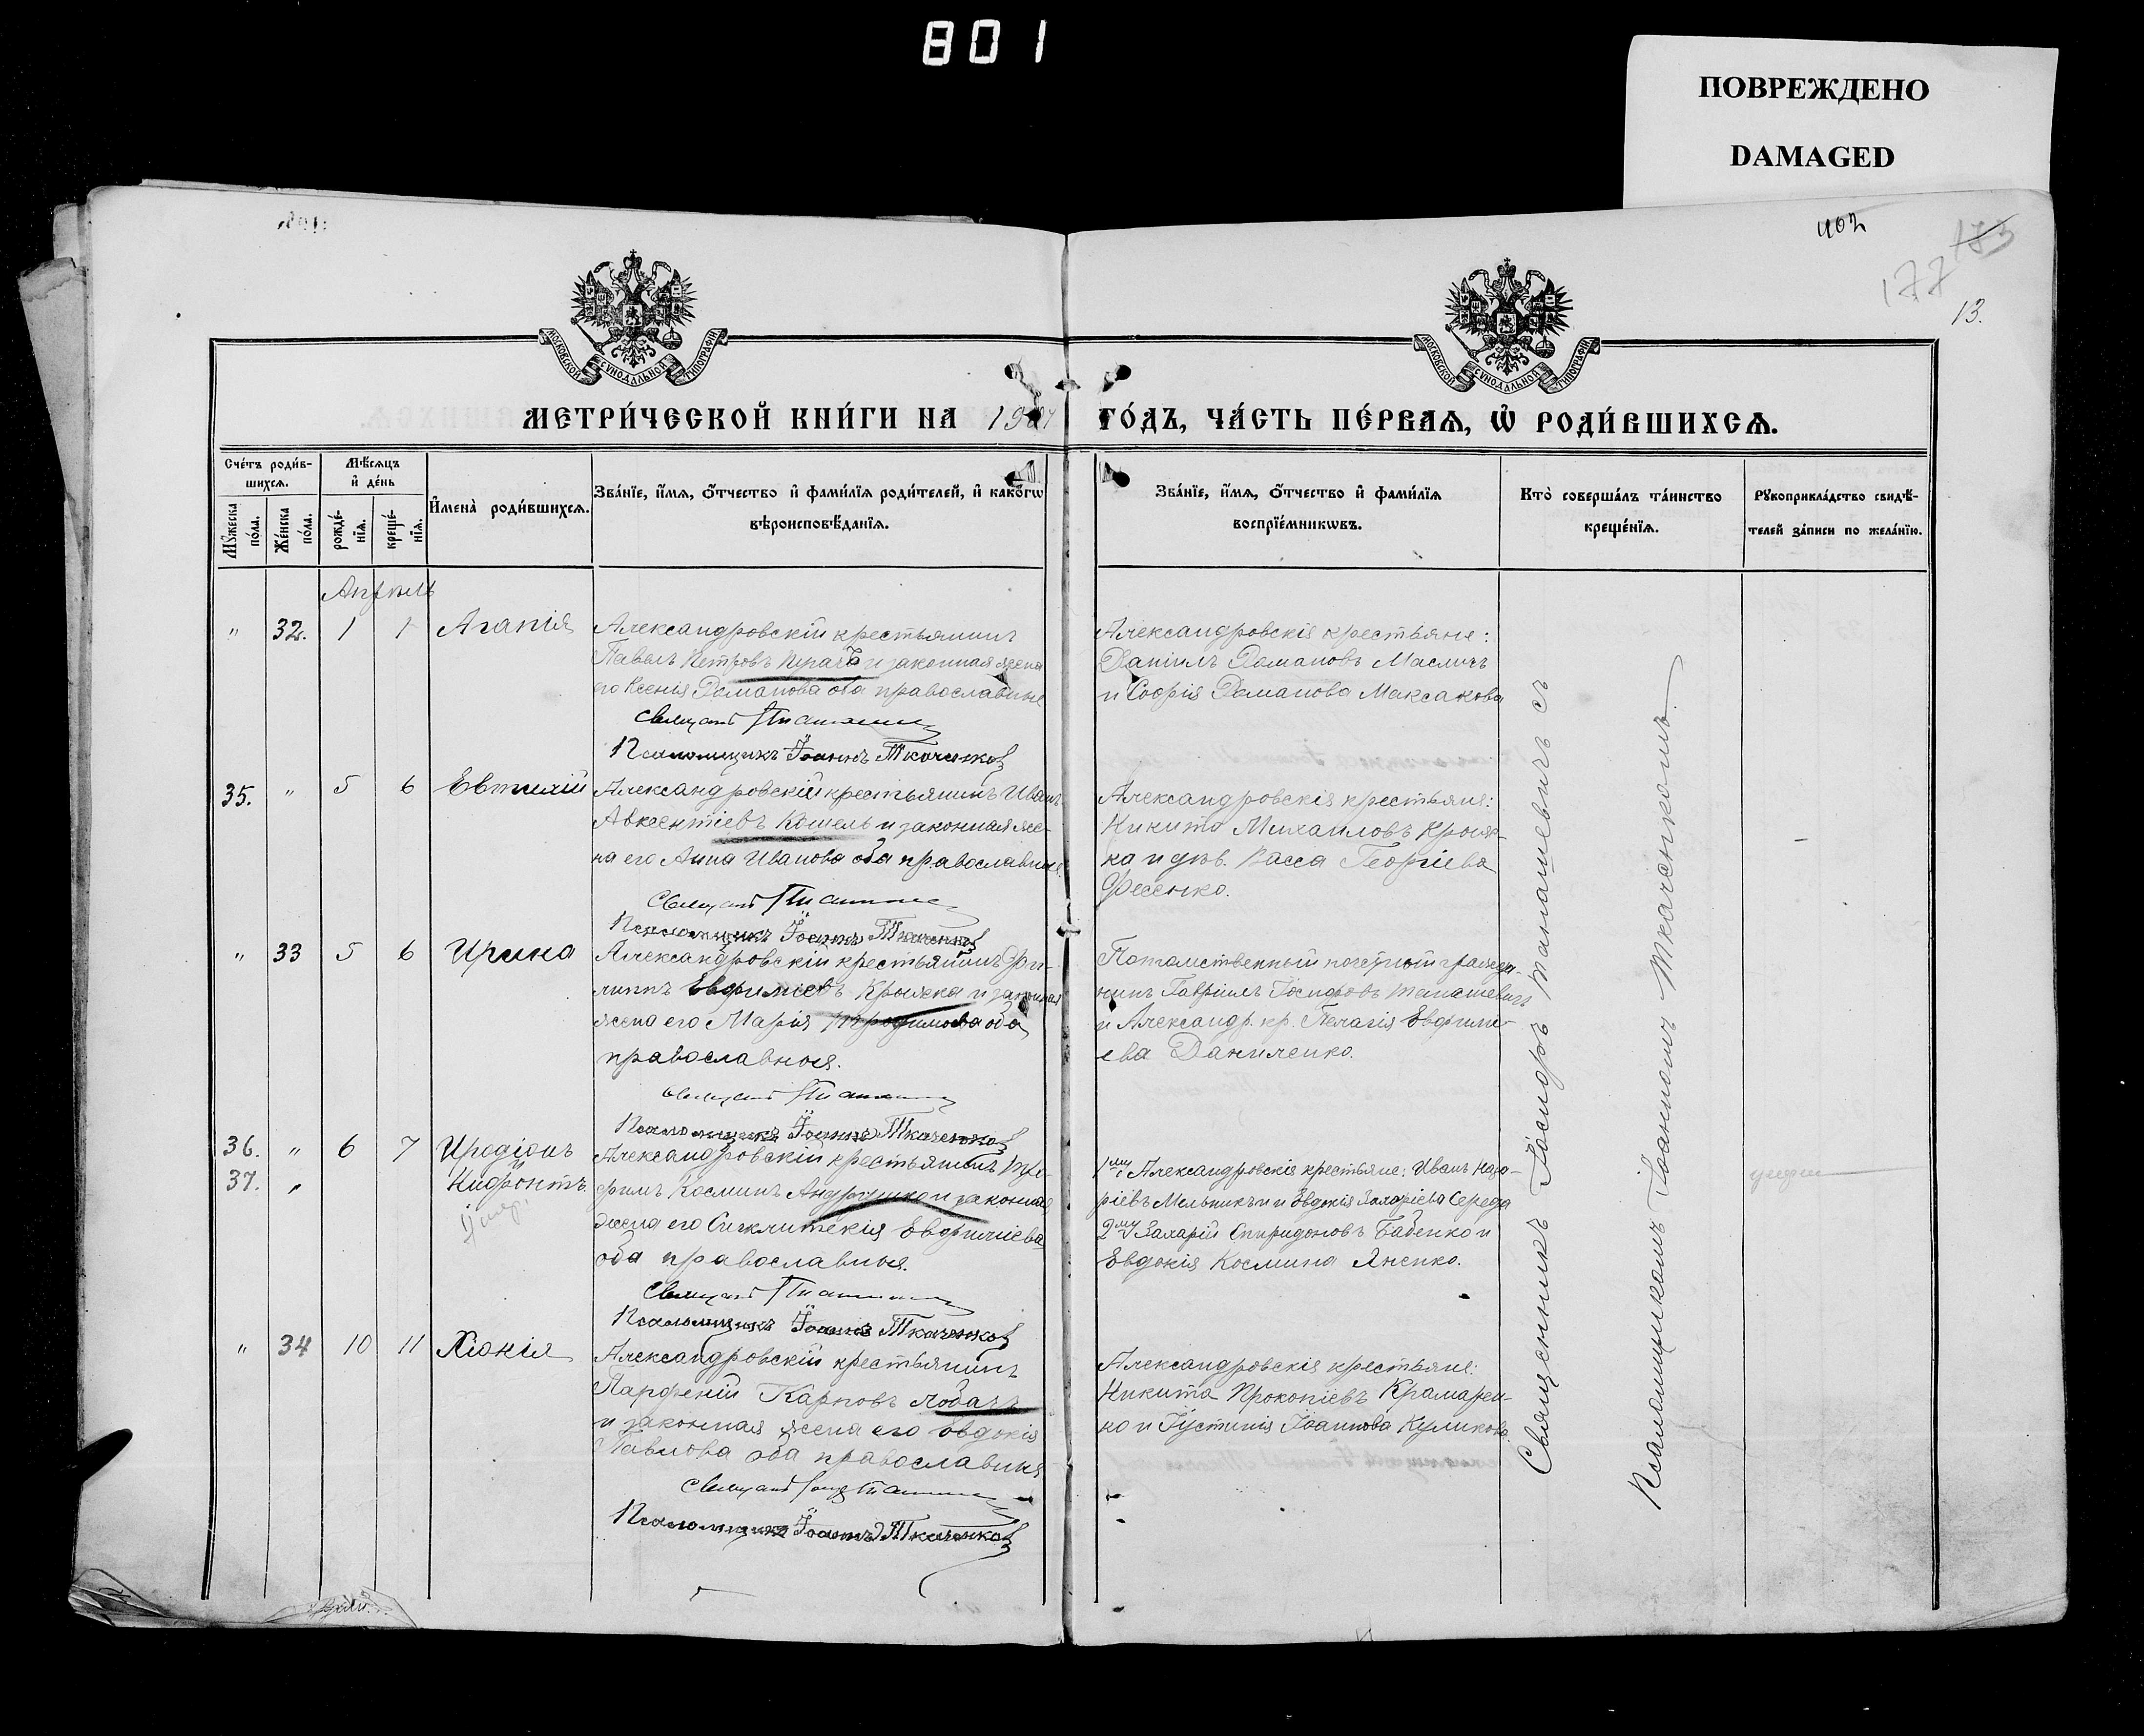 801
ПОВРЕЖДЕНО
DAMAGED
402
173
177
13.
МОСКОВСКОЙ СѴНОДАЛЬНОЙ ТИПОГРАФІИ
МОСКОВСКОЙ СѴНОДАЛЬНОЙ ТИПОГРАФІИ
МЕТРИ́ЧЕСКОЙ КНИ́ГИ НА 1904 ГО́ДЪ, ЧА́СТЬ ПЕ́РВАѦ, Ѽ РОДИ́ВШИХСѦ.
Сче́тъ роди́в-
шихсѧ.
Мꙋ́жеска по́ла.
Же́нска по́ла.
Мѣ́сѧцъ и҆ де́нь
рожде́-нїѧ.
креще́-нїѧ.
И҆мена̀ роди́вшихсѧ.
Зва́нїе, и҆́мѧ, ѻ҆́тчество и҆ фами́лїѧ роди́телей, и҆ како́гѡ
вѣроисповѣ́данїѧ.
Зва́нїе, и҆́мѧ, ѻ҆́тчество и҆ фами́лїѧ
воспрїе́мникѡвъ.
Кто̀ соверша́лъ та́инство
креще́нїѧ.
Рꙋкоприкла́дство свидѣ́-
телей за́писи по жела́нїю.
Апрѣль
" 32. 1 1 Агапія
Александровскій крестьянинъ
Павелъ Петровъ и законная жена
его Ксенія Романова оба православные
Псаломщикъ Іоаннъ Ткаченко
Александровскія крестьяне:
Даніилъ Романовъ Масличъ
и Софія Романова Максакова
35. " 5 6 Евтихій
Александровскій крестьянинъ Иванъ
Авксентіевъ Кошель и законная же-
на его Анна Иванова оба православныя.
Псаломщикъ Іоаннъ Ткаченко
Александровскія крестьяне:
Никита Михаиловъ Крыж-
ка и дѣв. Васса Георгіева
Фесенко.
" 33 5 6 Ирина
Александровскій крестьянинъ Фи-
липпъ Евфиміевъ Крыжка и законная
жена его Марія Трофимова оба
православныя.
Псаломщикъ Іоаннъ Ткаченко
Потомственный почетный гражда-
нинъ Гавріилъ Іосифовъ Танашевичъ
и Александр. кр. Пелагія Евфимі-
ева Даниленко.
36. " 6 7 Иродіонъ
и
37. " Нифонтъ.
Александровскій крестьянинъ Тро-
фимъ Косминъ Андрушко и законная
жена его Синклитикія Евфиміева
оба православныя.
Псаломщикъ Іоаннъ Ткаченко
1му Александровскія крестьяне: Иванъ Наза-
ріевъ Мельникъ и Евдокія Захаріева Середа
2му Захарій Спиридоновъ Бабенко и
Евдокія Космина Яненко.
умеръ
" 34 10 11 Хіонія
Александровскій крестьянинъ
Парфеній Карповъ Лобачъ
и законная жена его Евдокія
Павлова оба православныя
Псаломщикъ Іоаннъ Ткаченко
Александровскія крестьяне:
Никита Прокопіевъ Крамарен-
ко и Іустинія Іоаннова Куликова.
Священникъ Іосифъ Танашевичъ съ
Псаломщикомъ Іоанномъ Ткаченкомъ.